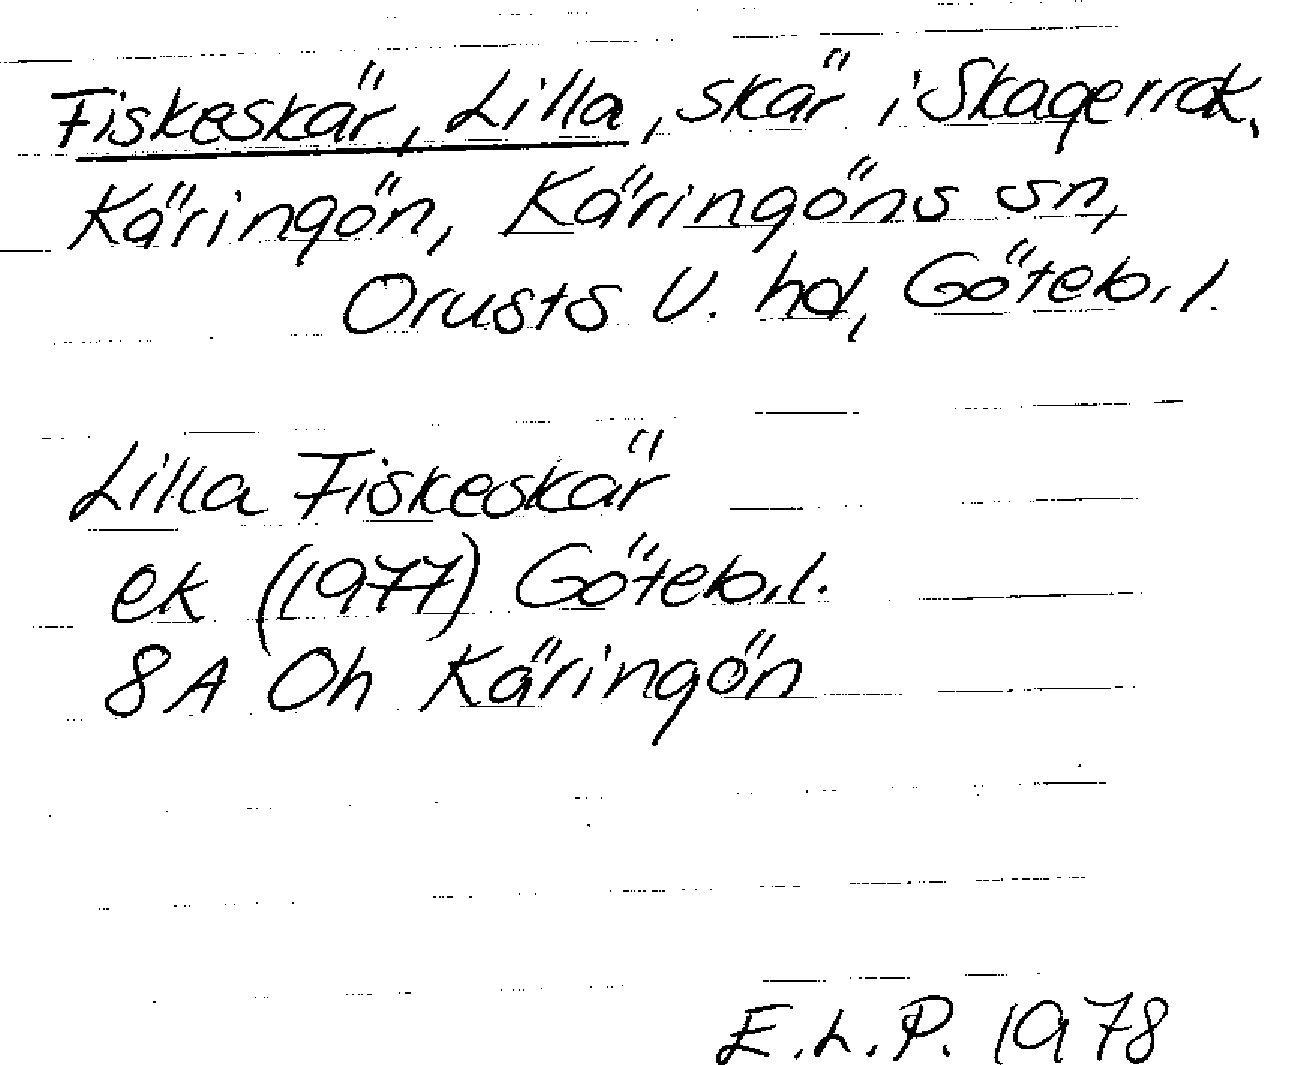 Fiskeskär, Lilla, skär i Skagerrak,
Käringön, Käringöns sn,
Orusts V. hd, Göteb. l.
Lilla Fiskeskär
ek (1977) Göteb. l.
8A Oh Käringön
E.L.P. 1978